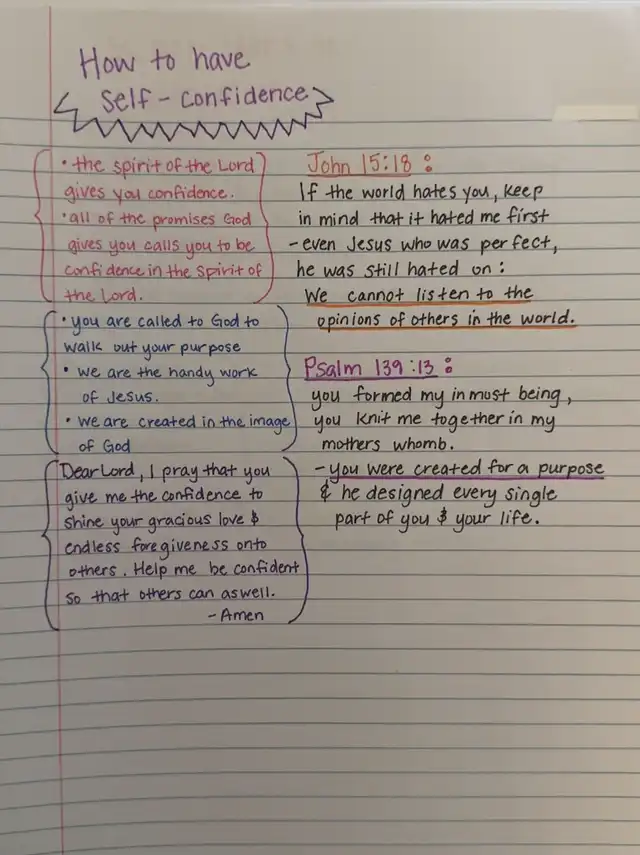 How to have
Self-confidence
• the spirit of the Lord
gives you confidence.
• all of the promises God
gives you calls you to be
confidence in the spirit of
the Lord.
• you are called to God to
walk out your purpose
• we are the handy work
of Jesus.
• we are created in the image
of God
Dear Lord, I pray that you
give me the confidence to
shine your gracious love &
endless foregiveness onto
others. Help me be confident
so that others can aswell.
- Amen
John 15:18 :
If the world hates you, keep
in mind that it hated me first
- even Jesus who was perfect,
he was still hated on :
We cannot listen to the
opinions of others in the world.
Psalm 139:13 :
you formed my in most being,
you knit me together in my
mothers whomb.
- you were created for a purpose
& he designed every single
part of you & your life.